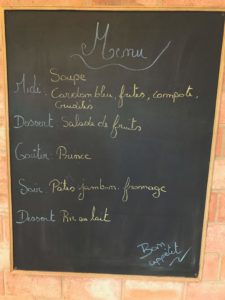 Menu
Soupe
Midi : Cordon bleu, frites, compote,
Crudités
Dessert : Salade de fruits
Goûter : Prunes
Soir : Pâtes jambon fromage
Dessert Riz au lait
Bon
appétit